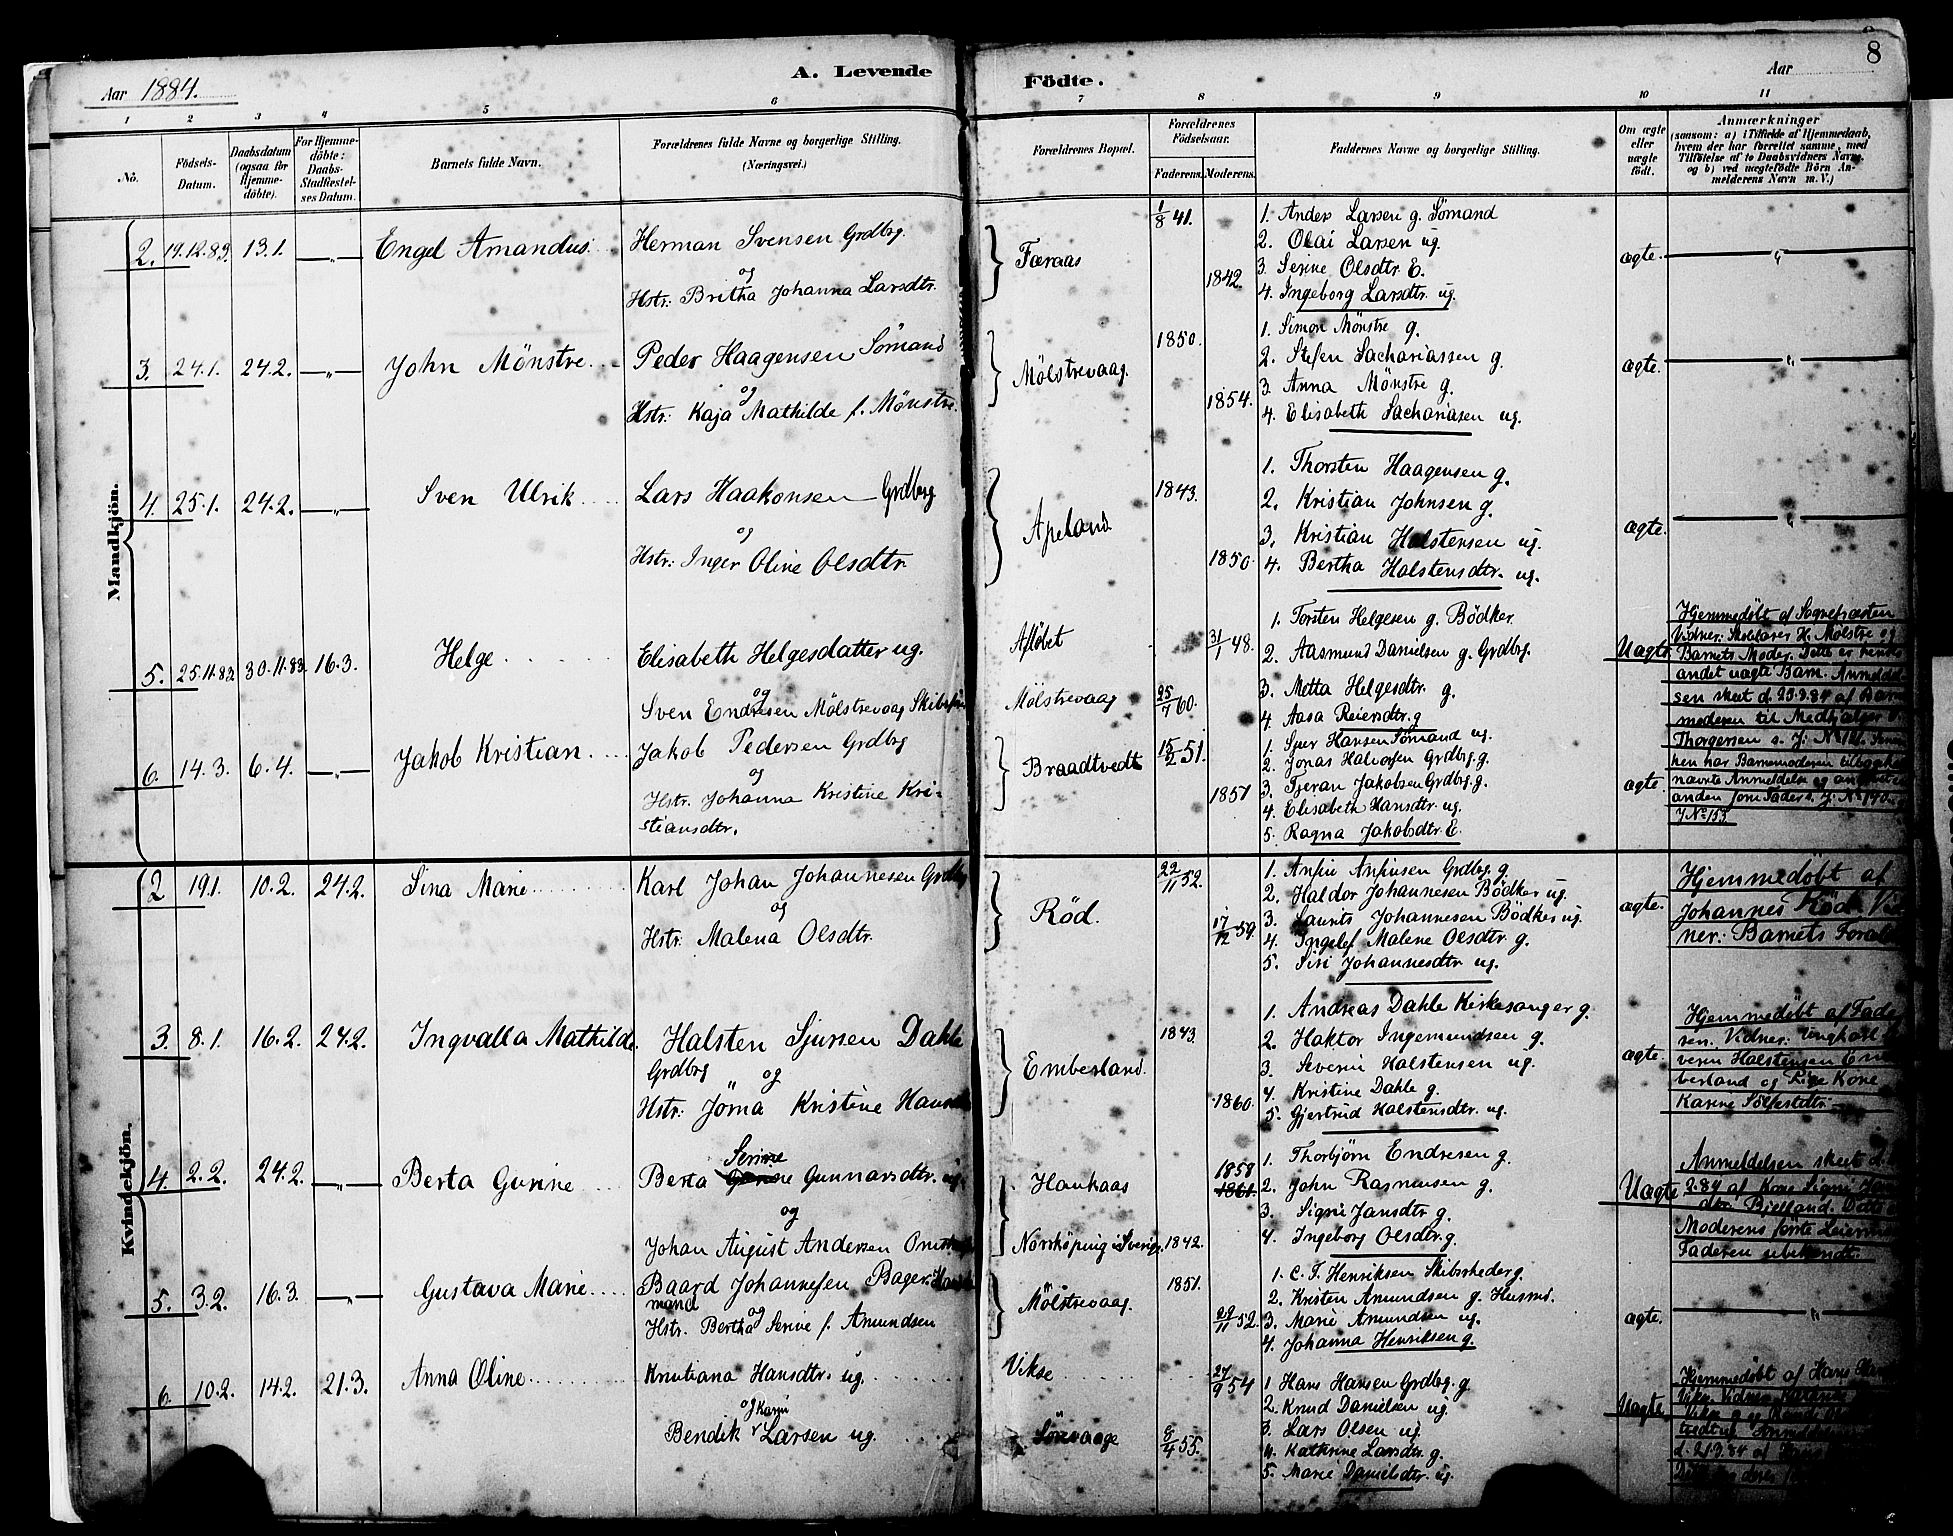 8
Aar 1884.
A. Levende
Födte.
Aar
1 2 3 4 5 6 7 8 9 10 11
No.
Födsels-
Datum.
Daabsdatum
(ogsaa for
Hjemme-
döbte).
For Hjemme-
döbte:
Daabs-
Stadfæstel-
ses Datum.
Barnets fulde Navn.
Forældrenes fulde Navne og borgerlige Stilling.
(Næringsvei.)
Forældrenes Bopæl.
Forældrenes
Födselsaar.
Faderens. Moderens.
Faddernes Navne og borgerlige Stilling.
Om ægte
eller
uægte
födt.
Anmærkninger
(saasom: a) i Tilfælde af Hjemmedaab,
hvem der har forrettet samme, med
Tilföielse af to Daabsvidners Navne,
og b) ved uægtefödte Börn An-
melderens Navn m. V.)
Mandkjön.
2. 19.12.83. 13.1. —„— Engel Amandus
Herman Svensen Grdbrg.
og
Hstr. Britha Johanna Larsdtr.
Færaas
1/8 41.
1842.
1. Anders Larsen g. Sømand
2. Olai Larsen ug.
3. Serine Olsdtr. E.
4. Ingeborg Larsdtr. ug.
ægte.
3. 24.1. 24.2. —„— John Mönstre.
Peder Haagensen Sømand
og
Hstr: Kaja Mathilde f. Mønstre.
Mølstrevaag.
1850.
1854.
1. Simon Mønstre g.
2. Stefen Sachariassen g.
3. Anna Mønstre g.
4. Elisabeth Sachariasen ug.
ægte.
4. 25.1. 24.2. —„— Sven Ulrik
Lars Haakonsen Grdbrg
og
Hstr: Inger Oline Olsdtr.
Apeland
1843.
1850.
1. Thorsten Haagensen g.
2. Kristian Johnsen g.
3. Kristian Halstensen ug.
4. Bertha Halstensdtr. ug.
ægte.
5. 25.11.83. 30.11.83. 16.3. Helge
Elisabeth Helgesdatter ug.
og
Sven Endresen Mølstrevaag
Afløbet
Mølstrevaag
31/1 48.
25/7 60.
1. Torsten Helgesen g. Bødker
2. Aasmund Danielsen g. Grdbrg.
3. Metta Helgesdtr. g.
4. Aasa Reiersdtr. g
Uægte
Hjemmedøbt af Sognepræsten
Vidner: Skolelærer H. Mølstre og
Barnets Moder. Dette er hendes
andet uægte Barn. Anmeldel-
sen skeet d. 23.3.84 af Barne-
moderen til Medhjælper
Thorgersen s. J. No
hen har Barnemoderen tilbagekal
nævnte Anmeldelse og
anden som Fader s. J. No
J No 153.
6. 14.3. 6.4. —„— Jakob Kristian
Jakob Pedersen Grdbrg
og
Hstr. Johanna Kristine Kri-
stiansdtr.
Braadtvedt
15/2 51.
1857
1. Sjur Hansen Sømand ug.
2. Jonas Halvorsen Grdbrg. g.
3. Tjeran Jakobsen Grdbrg. g.
4. Elisabeth Hansdtr. ug.
5. Ragna Jakobsdtr. E.
ægte
Kvindekjön.
2 19.1. 10.2. 24.2. Sina Marie
Karl Johan Johannesen Grdbrg
og
Hstr: Malena Olsdtr.
Rød.
22/11 52.
17/12 59.
1. Anfin Anfinsen Grdbrg. g.
2. Haldor Johannesen Bødker ug.
3. Laurits Johannesen Bødker ug.
4. Ingelef Malene Olsdtr. g.
5. Siri Johannesdtr. ug.
ægte.
Hjemmedøbt af
Johannes Rød. Vid
ner: Barnets Foræl
3. 8.1. 16.2. 24.2. Ingvalla Mathilde
Halsten Sjursen Dahle
Grdbrg
og
Hstr: Jörna Kristine Hans
Emberland.
1843.
1860.
1. Andreas Dahle Kirkesanger g.
2. Haktor Ingemundsen g.
3. Severin Halstensen ug.
4. Kristine Dahle g.
5. Gjertrud Halstensdtr. ug.
ægte.
Hjemmedøbt af Fade
ren. Vidner: Ungkarl
verin Halstensen Em
berland og Pige Kone
Karine Sølfestdtr.
4. 2.2. 24.2. —„— Berta Gurine
Serine
Berta Gurine Gunnarsdtr. ug.
og
Johan August Andersen
Haukaas
Norrköping i Sverige
1858
1861.
1842.
1. Thorbjørn Endresen g.
2. John Rasmussen g.
3. Signe Jansdtr. g.
4. Ingeborg Olsdtr. g.
Uægte
Anmeldelsen skeet d.
2.84 af Kone Signe
dtr. Bjelland. Dette
Moderens første Leiermaal
Faderen ubekjendt.
5. 3.2. 16.3. —„— Gustava Marie
Baard Johannesen Bager
mand
og
Hstr. Bertha Serine f. Amundsen
Mølstrevaag.
1851.
29/11 52.
1. C. T. Henriksen Skibsrheder g.
2. Kristen Amundsen g. Husmd.
3. Marie Amundsen ug.
4. Johanna Henriksen g.
ægte.
6. 10.2. 14.2. 21.3. Anna Oline
Kristiana Hansdtr. ug.
og Karin
Bendik Larsen ug.
Vikse
Sørevaage
27/9 54
8/4 55.
1 Hans Hansen Grdbrg. g.
2. Knud Danielsen ug.
3. Lars Olsen ug.
4. Kathrine Larsdtr. g.
5. Marie Danielsdtr. ug.
Uægte
Hjemmedøbt af Hans
d. 21.3.84 af